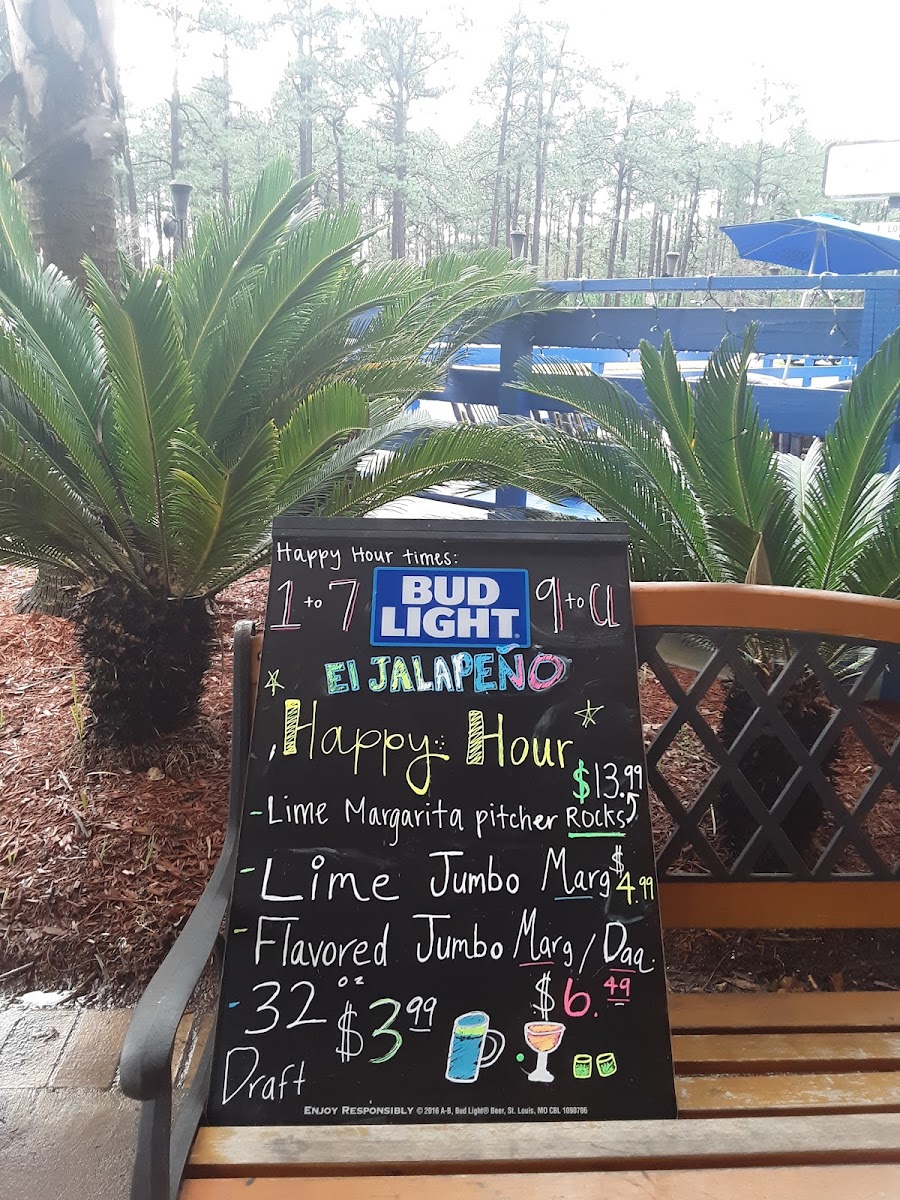 Happy Hour times:
1 to 7 BUD LIGHT 9 to a
El JALAPEÑO
Happy Hour
$13.99
- Lime Margarita pitcher Rocks
- Lime Jumbo Marg $4.99
- Flavored Jumbo Marg / Daq.
$6.49
- 32 oz $3.99
Draft
ENJOY RESPONSIBLY © 2016 A-B, Bud Light® Beer, St. Louis, MO CBL 1098766